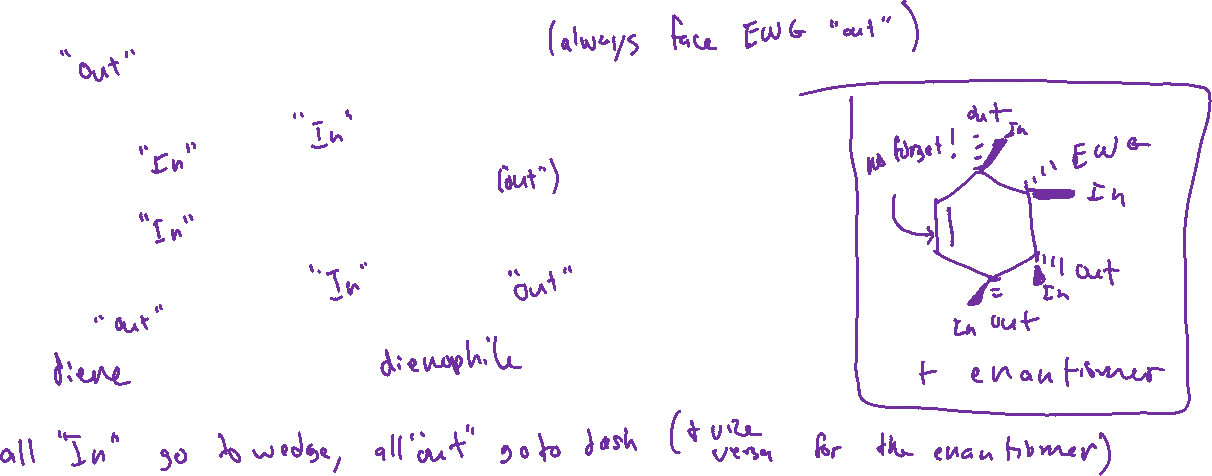 (always face EWG "out")
"out"
"In"
"In"
(out")
"In"
"In"
"out"
"out"
diene
dienophile
out
In
forget!
EWG
In
out
In
In out
+ enantiomer
all "In" go to wedge, all "out" go to dash (+ vice versa for the enantiomer)